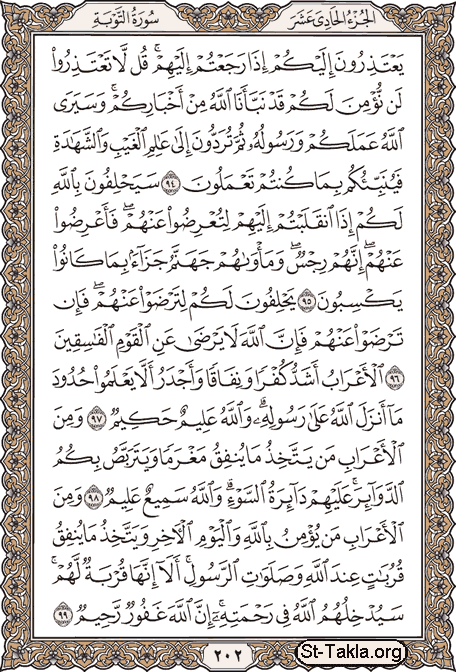 الجزء الحادي عشر
سورة التوبة
يَعْتَذِرُونَ إِلَيْكُمْ إِذَا رَجَعْتُمْ إِلَيْهِمْ ۚ قُل لَّا تَعْتَذِرُوا۟
لَن نُّؤْمِنَ لَكُمْ قَدْ نَبَّأَنَا ٱللَّهُ مِنْ أَخْبَارِكُمْ ۚ وَسَيَرَى
ٱللَّهُ عَمَلَكُمْ وَرَسُولُهُۥ ثُمَّ تُرَدُّونَ إِلَىٰ عَـٰلِمِ ٱلْغَيْبِ وَٱلشَّهَـٰدَةِ
فَيُنَبِّئُكُم بِمَا كُنتُمْ تَعْمَلُونَ ٩٤ سَيَحْلِفُونَ بِٱللَّهِ
لَكُمْ إِذَا ٱنقَلَبْتُمْ إِلَيْهِمْ لِتُعْرِضُوا۟ عَنْهُمْ ۖ فَأَعْرِضُوا۟
عَنْهُمْ ۖ إِنَّهُمْ رِجْسٌ ۖ وَمَأْوَىٰهُمْ جَهَنَّمُ جَزَآءًۢ بِمَا كَانُوا۟
يَكْسِبُونَ ٩٥ يَحْلِفُونَ لَكُمْ لِتَرْضَوْا۟ عَنْهُمْ ۖ فَإِن
تَرْضَوْا۟ عَنْهُمْ فَإِنَّ ٱللَّهَ لَا يَرْضَىٰ عَنِ ٱلْقَوْمِ ٱلْفَـٰسِقِينَ
٩٦ ٱلْأَعْرَابُ أَشَدُّ كُفْرًا وَنِفَاقًا وَأَجْدَرُ أَلَّا يَعْلَمُوا۟ حُدُودَ
مَآ أَنزَلَ ٱللَّهُ عَلَىٰ رَسُولِهِۦ ۗ وَٱللَّهُ عَلِيمٌ حَكِيمٌ ٩٧ وَمِنَ
ٱلْأَعْرَابِ مَن يَتَّخِذُ مَا يُنفِقُ مَغْرَمًا وَيَتَرَبَّصُ بِكُمُ
ٱلدَّوَآئِرَ ۚ عَلَيْهِمْ دَآئِرَةُ ٱلسَّوْءِ ۗ وَٱللَّهُ سَمِيعٌ عَلِيمٌ ٩٨ وَمِنَ
ٱلْأَعْرَابِ مَن يُؤْمِنُ بِٱللَّهِ وَٱلْيَوْمِ ٱلْـَٔاخِرِ وَيَتَّخِذُ مَا يُنفِقُ
قُرُبَـٰتٍ عِندَ ٱللَّهِ وَصَلَوَٰتِ ٱلرَّسُولِ ۚ أَلَآ إِنَّهَا قُرْبَةٌ لَّهُمْ ۚ
سَيُدْخِلُهُمُ ٱللَّهُ فِى رَحْمَتِهِۦٓ ۗ إِنَّ ٱللَّهَ غَفُورٌ رَّحِيمٌ ٩٩
٢٠٢
St-Takla.org